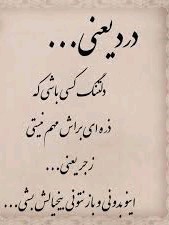 درد یعنی...
دلتنگ کسی باشی که
ذره ای براش مهم نیستی
زجر یعنی...
اینو بدونی و باز نتونی بیخیالش بشی...